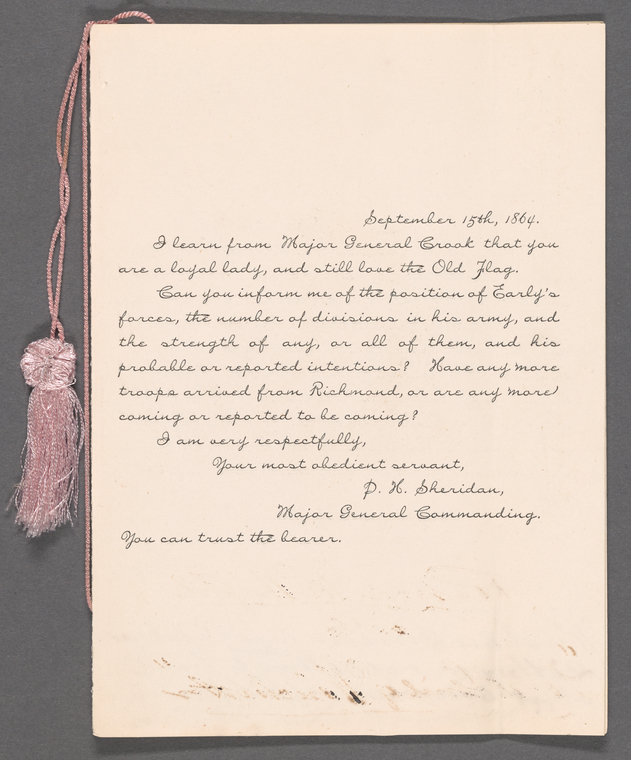 September 15th, 1864.
I learn from Major General Crook that you
are a loyal lady, and still love the Old Flag.
Can you inform me of the position of Early's
forces, the number of divisions in his army, and
the strength of any, or all of them, and his
probable or reported intentions? Have any more
troops arrived from Richmond, or are any more
coming or reported to be coming?
I am very respectfully,
Your most obedient servant,
P. H. Sheridan,
Major General Commanding.
You can trust the bearer.